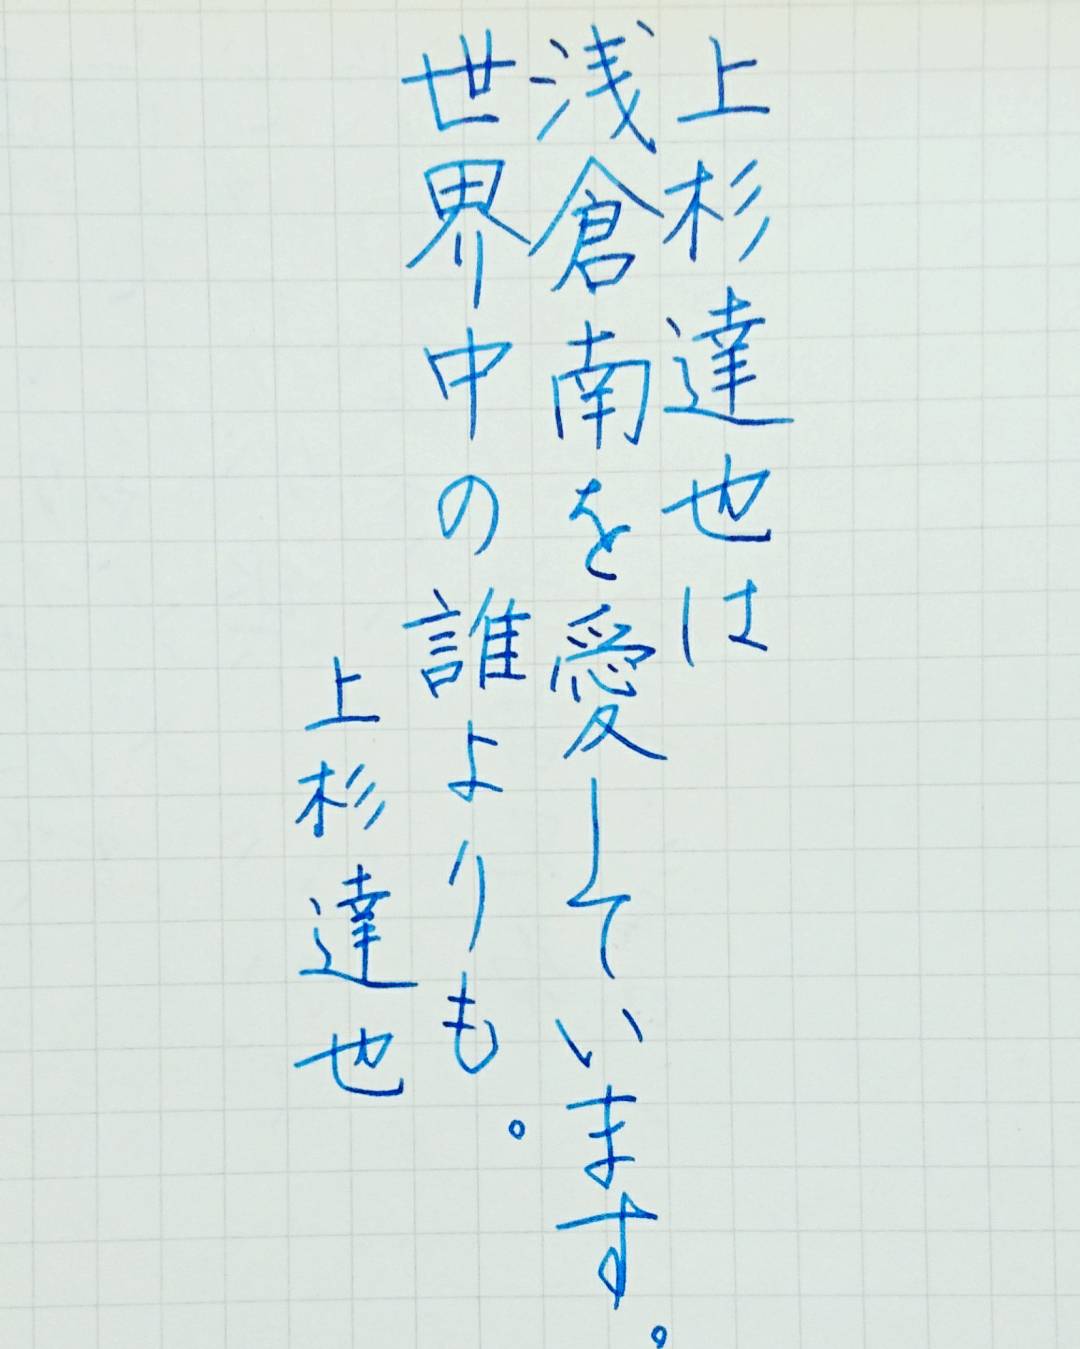 上杉達也は
浅倉南を愛しています。
世界中の誰よりも。
上杉達也